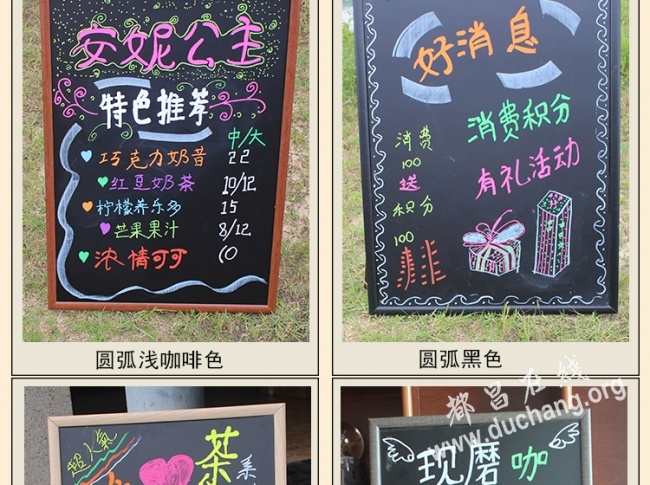 安妮公主
特色推荐
中/大
巧克力奶昔 22
红豆奶茶 10/12
柠檬养乐多 15
芒果果汁 8/12
浓情可可 10
圆弧浅咖啡色
好消息
消费积分
有礼活动
消费
100
送
积分
100
圆弧黑色
超人氣
茶
系
现磨咖
都昌在线
www.duchang.org